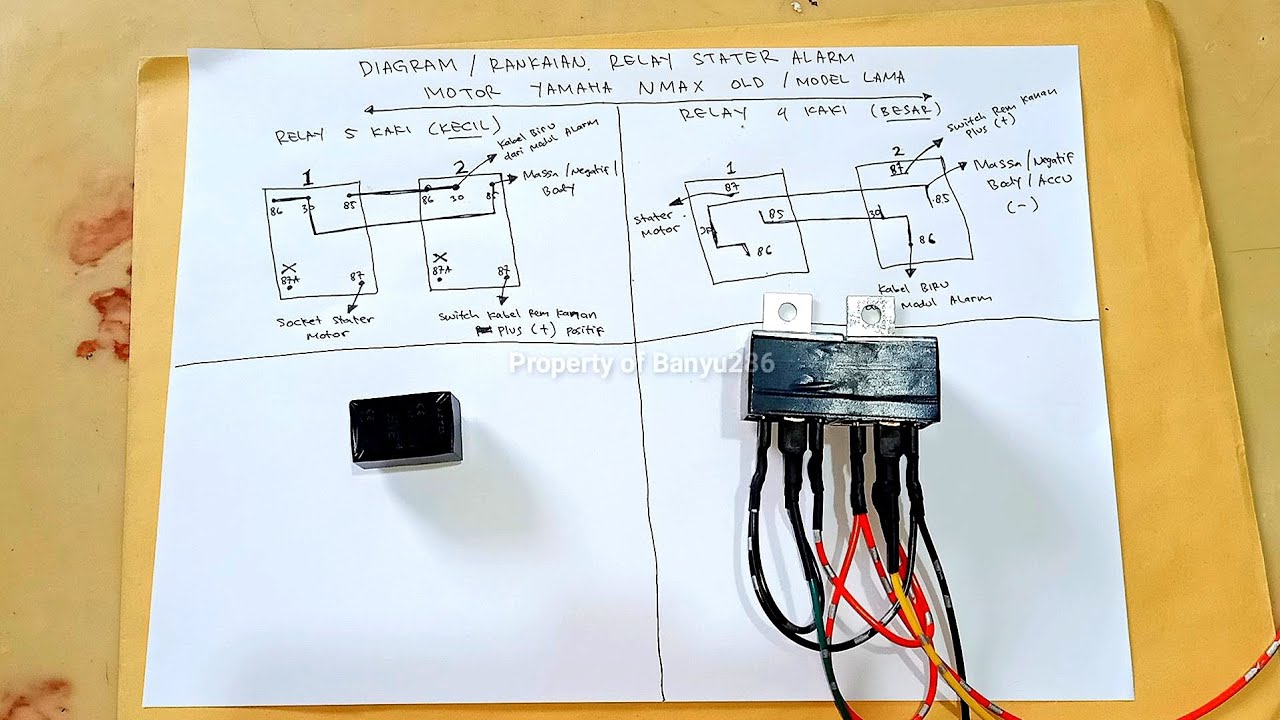 DIAGRAM / RANKAIAN. RELAY STATER ALARM
MOTOR YAMAHA NMAX OLD / MODEL LAMA
RELAY 5 KAKI (KECIL)
Kabel Biru
dari Modul Alarm
1
2
Massa/Negatif/
Body
86
30
85
86
30
85
87A
87
87A
87
Socket Stater
Motor
Switch Kabel Rem Kanan
Plus (+) Positif
RELAY 4 KAKI (BESAR)
Switch Rem Kanan
Plus (+)
1
2
87
87
Massa/Negatif
Body/ACCU
(-)
Stater
Motor
85
30
85
86
86
Kabel BIRU
Modul Alarm
Property of Banyu286